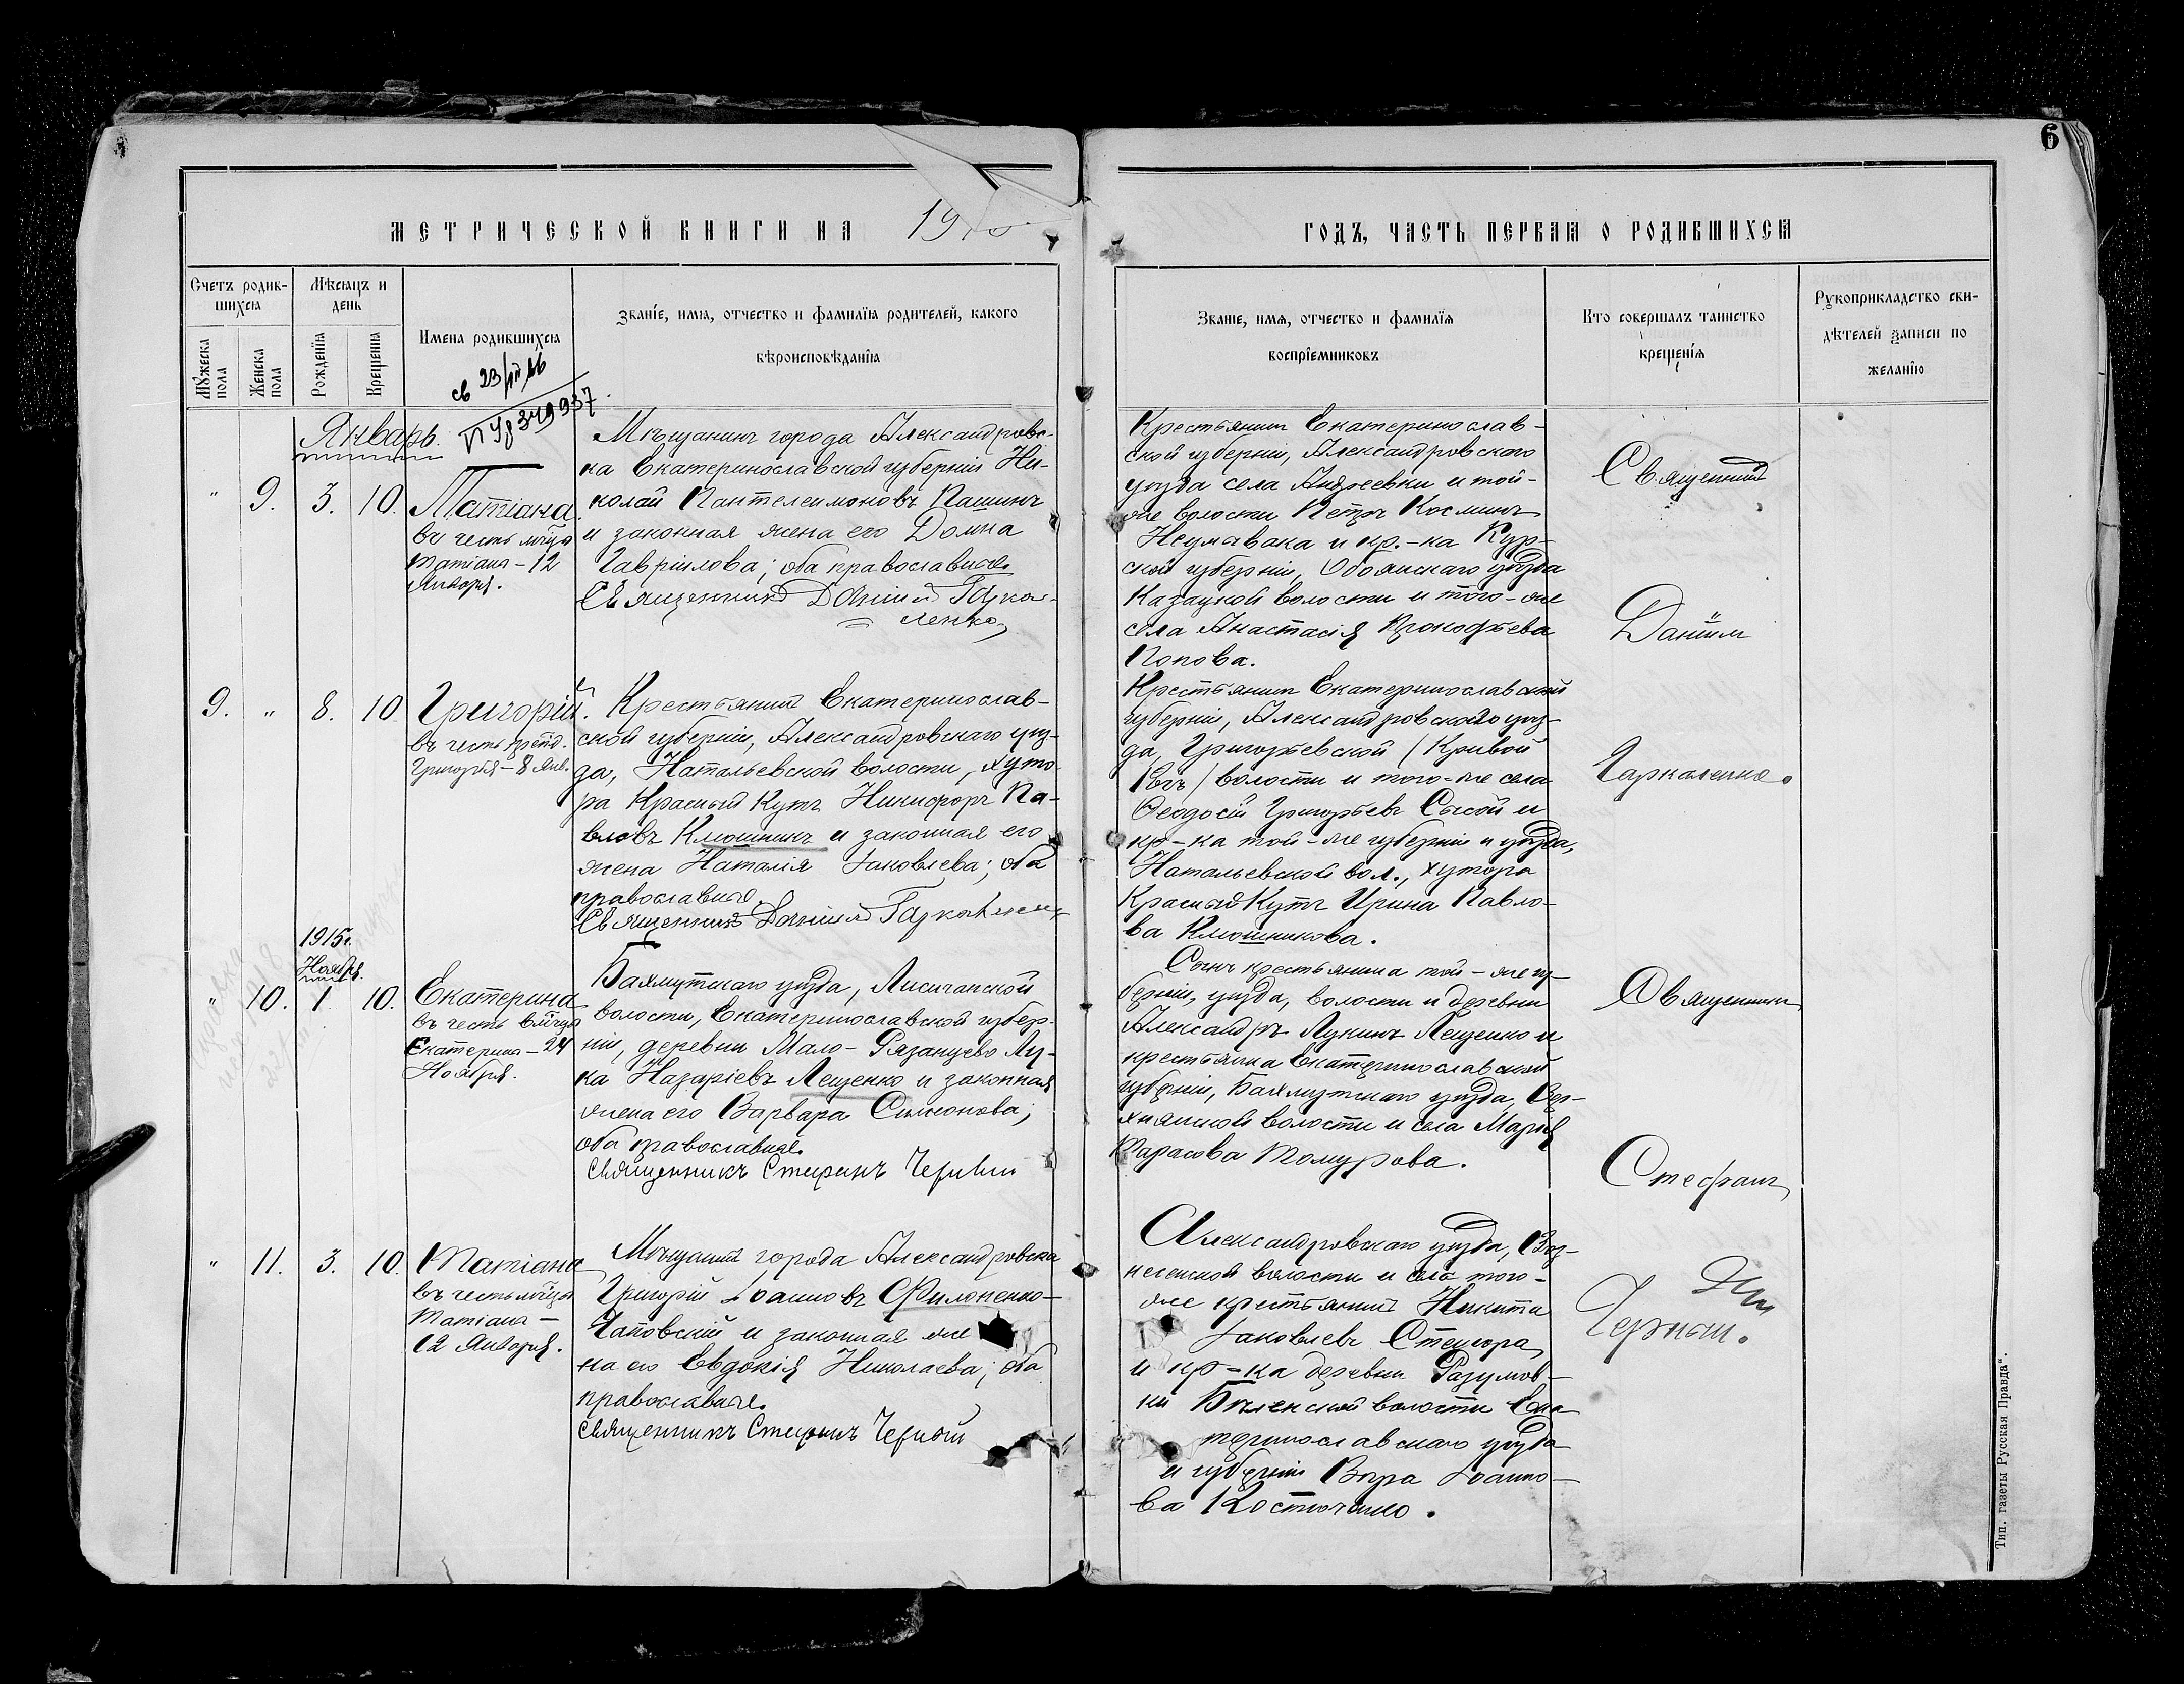 6
МЕТРИЧЕСКОЙ КНИГИ НА 19
ГОДЪ, ЧАСТЬ ПЕРВАЯ О РОДИВШИХСЯ
Счетъ родив-
шихся
Мѣсяцъ и
день
Мужеска
пола
Женска
пола
Рожденїя
Крещенїя
Имена родившихся
Званїе, имя, отчество и фамилїя родителей, какого
вѣроисповѣданїя
Званїе, имя, отчество и фамилїя
воспрїемниковъ
Кто совершалъ таинство
крещенїя
Рукоприкладство сви-
дѣтелей записи по
желанїю
Январь.
" 9. 3. 10.
Татіана
въ честь мч҃цы
Татіана - 12
Января.
Мѣщанинъ города Александровс-
ка Екатеринославской губерніи Ни-
колай Пантелеимоновъ Пашинъ
и законная жена его Домна
Гавріилова; оба православные.
Священникъ Даніилъ Гарка-
ленко
Крестьянинъ Екатеринослав-
ской губерніи, Александровскаго
уѣзда села Андреевки и той-
же волости Петръ Косминъ
и кр.-ка Кур-
ской губерніи, Обоянскаго уѣзда
Казацкой волости и того-же
села Анастасія Прокофьева
Попова.
Священникъ
Даніилъ
Гаркаленко.
9. " 8. 10
Григорій.
въ честь преп҃д.
Григорія - 8 Янв.
Крестьянинъ Екатеринослав-
ской губерніи, Александровскаго уѣз-
да, Натальевской волости, хуто-
ра Красный Кутъ Никифоръ Па-
вловъ Клюшникъ и законная его
жена Наталія Іаковлева; оба
православные.
Священникъ Даніилъ Гаркаленко
Крестьянинъ Екатеринославской
губерніи, Александровскаго уѣз-
да, Григорьевской (Кривой
Рогъ) волости и того-же села
Феодосій Григорьевъ Сысой и
кр-ка той-же губерніи и уѣзда,
Натальевской вол., хутора
Красный Кутъ Ирина Павло-
ва Клюшникова.
1915г.
Ноября.
" 10. 1 10.
Екатерина
въ честь влмч҃цы
Екатерина - 24
Ноября.
Бахмутскаго уѣзда, Лисичанской
волости, Екатеринославской губер-
ніи, деревни Мало-Рязанцево Лу-
ка Назаріевъ Лещенко и законная
жена его Варвара Симеонова;
оба православные.
священникъ Стефанъ Черный
Сынъ крестьянина той-же гу-
берніи, уѣзда, волости и деревни
Александръ Лукинъ Лещенко и
крестьянка Екатеринославской
губерніи, Бахмутскаго уѣзда, Вер-
хнянской волости и села Марія
Тарасова Томурова.
Священникъ
Стефанъ
Черный.
" 11. 3. 10.
Татіана
въ честь мч҃цы
Татіана -
12 Января.
Мѣщанинъ города Александровска
Григорій Іоанновъ Филоненко-
Чаповскій и законная же
на его Евдокія Николаева; оба
православные.
священникъ Стефанъ Черный
Александровскаго уѣзда, Воз-
несенской волости и села того-
же крестьянинъ Никита
Іаковлевъ Стецюра
и кр-ка деревни Разумов-
ки Бѣленской волости Ека
теринославскаго уѣзда
и губерніи Вѣра Іоанно-
ва Косточкино.
Тип. газеты Русская Правда".